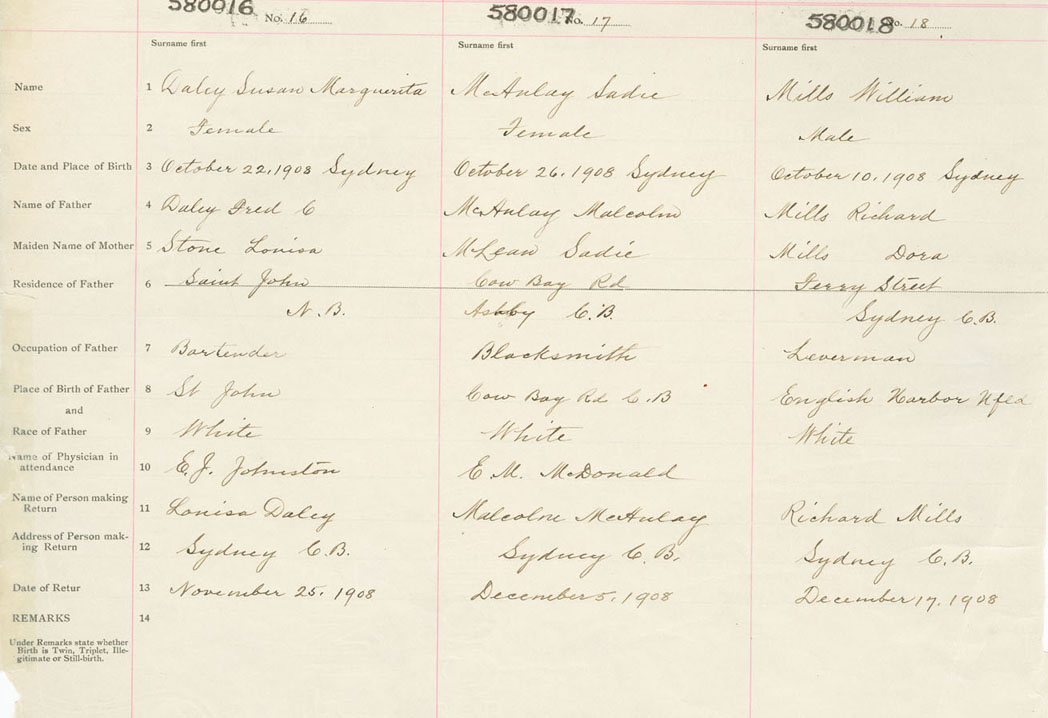 580016 No. 16 580017 No. 17 580018 No. 18
Surname first Surname first Surname first
Name 1 Daley Susan Marguerita McAulay Sadie Mills William
Sex 2 Female Female Male
Date and Place of Birth 3 October 22, 1908 Sydney October 26, 1908 Sydney October 10, 1908 Sydney
Name of Father 4 Daley Fred C McAulay Malcolm Mills Richard
Maiden Name of Mother 5 Stone Louisa McLean Sadie Mills Dora
Residence of Father 6 Saint John Cow Bay Rd Ferry Street
N.B. Ashby C.B. Sydney C.B.
Occupation of Father 7 Bartender Blacksmith Leverman
Place of Birth of Father 8 St John Cow Bay Rd C.B English Harbor Nfld
and
Race of Father 9 White White White
Name of Physician in
attendance 10 E. J. Johnston E M. McDonald
Name of Person making
Return 11 Louisa Daley Malcolm McAulay Richard Mills
Address of Person mak-
ing Return 12 Sydney C.B. Sydney C.B. Sydney C.B.
Date of Retur 13 November 25, 1908 December 5, 1908 December 17, 1908
REMARKS 14
Under Remarks state whether
Birth is Twin, Triplet, Ille-
gitimate or Still-birth.